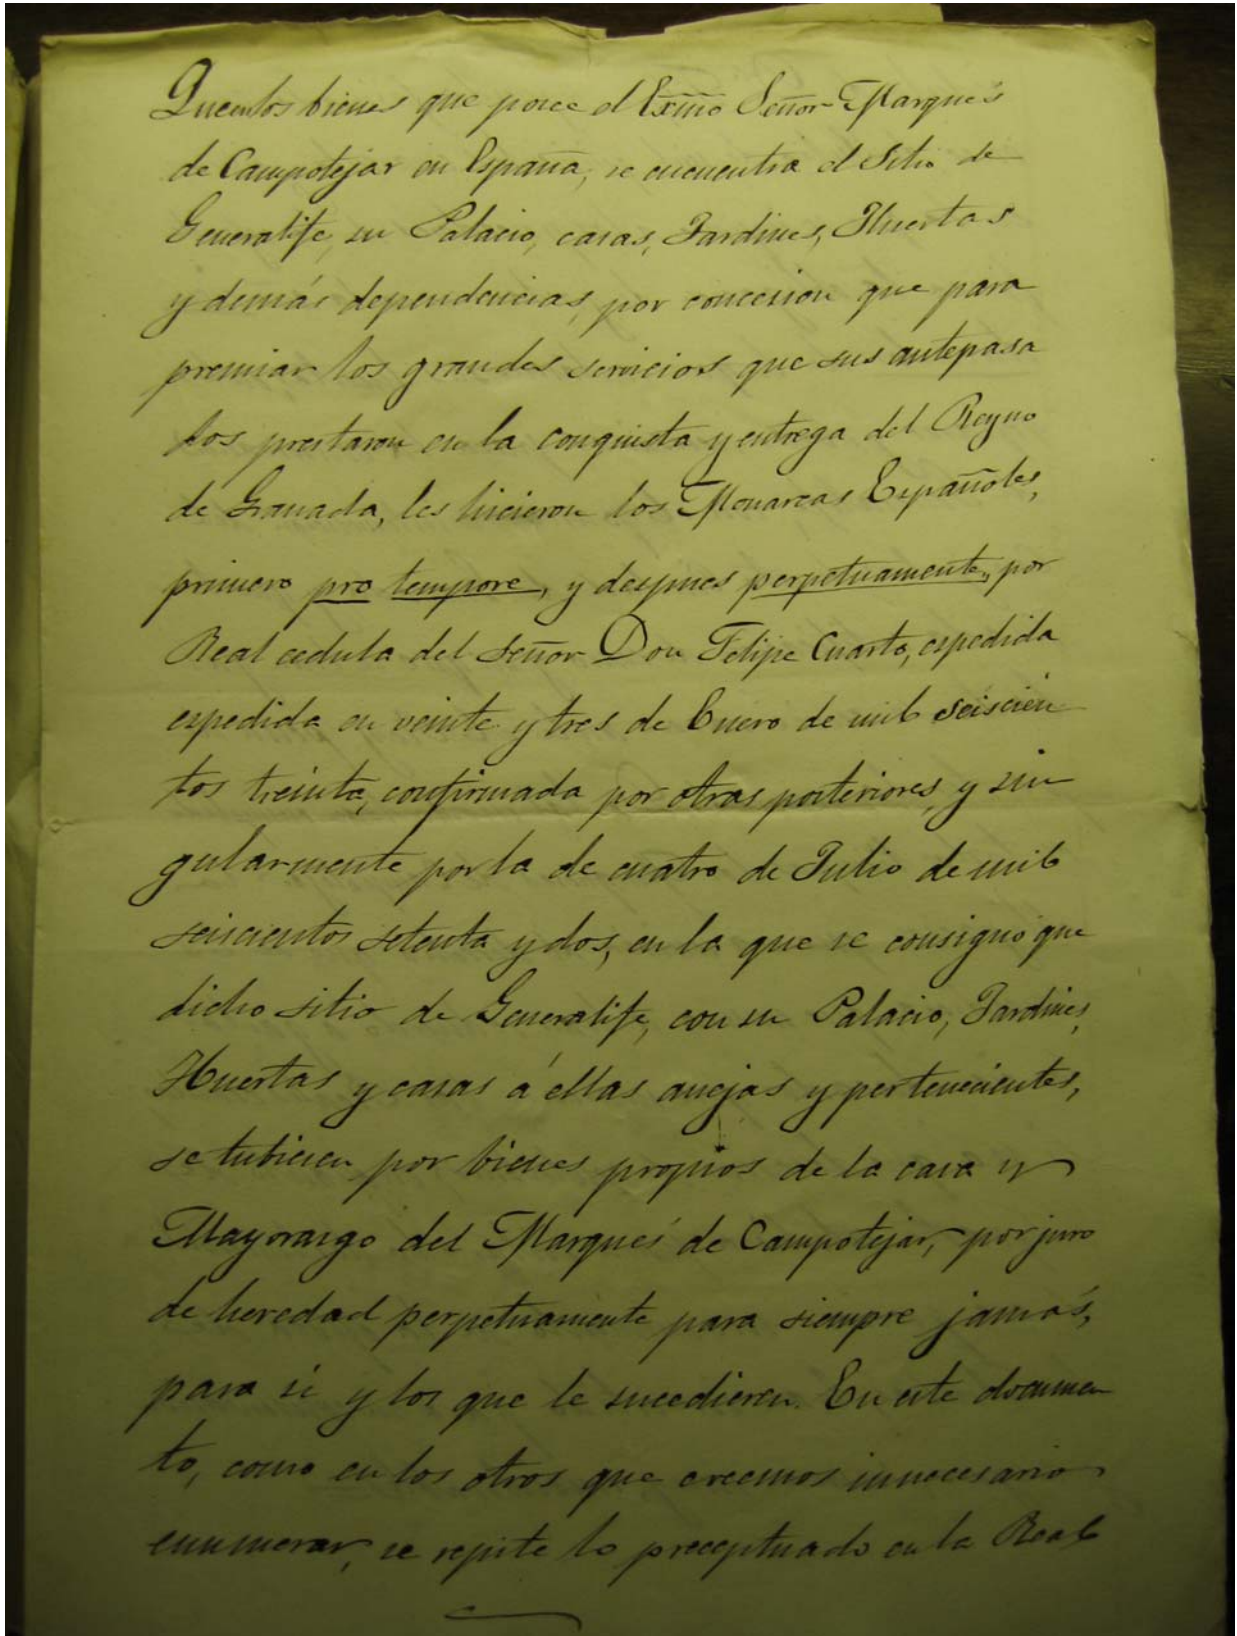 Que en los bienes que posee el Exmo Señor Marqués
de Campotejar en España, se encuentra el Sitio de
Generalife, su Palacio, casas, Jardines, Huertas
y demás dependencias, por concesion que para
premiar los grandes servicios que sus antepasa
dos prestaron en la conquista y entrega del Reyno
de Granada, les hicieron los Monarcas Españoles,
primero pro tempore, y despues perpetuamente, por
Real cedula del Señor Don Felipe Cuarto, espedida
espedida en veinte y tres de Enero de mil seiscien
tos treinta, confirmada por otras posteriores, y sin
gularmente por la de cuatro de Julio de mil
seiscientos setenta y dos, en la que se consigno que
dicho sitio de Generalife, con su Palacio, Jardines,
Huertas y casas á ellas anejas y pertenecientes,
se tubiesen por bienes propios de la casa y
Mayorazgo del Marqués de Campotejar, por juro
de heredad perpetuamente para siempre jamás,
para si y los que le sucedieren. En este documen
to, como en los otros que creemos innecesario
enumerar, se repite lo preceptuado en la Real